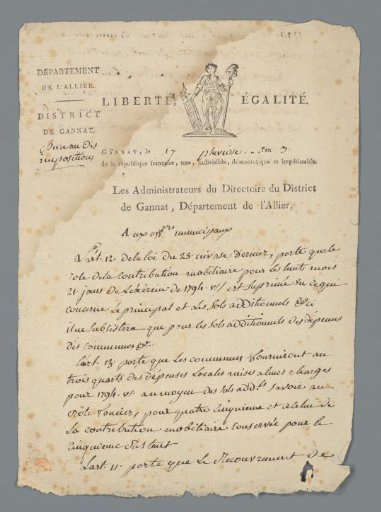 DÉPARTEMENT
DE L'ALLIER.
DISTRICT
DE GANNAT.
Bureau des
impositions
LIBERTÉ, ÉGALITÉ.
GANNAT, le 17 pluviose l'an 3
de la république française, une, indivisible, démocratique et impérissable.
Les Administrateurs du Directoire du District
de Gannat, Département de l'Allier,
Aux off.rs municipaux
L'art. 12 de la loi du 23 nivose dernier, porte que le
role de la contribution mobiliaire pour les huit mois
21 jours de l'exercice de 1794 est suprimé en ce qui
concerne le principal et les sols additionnels
il ne subsistera que pour les sols additionnels des depenses
des communes &c.
L'art. 13 porte que les communes fourniront aux
trois quarts des depenses Locales mises a leurs charges
pour 1794 au moyen des sols add.els savoir au
role foncier, pour quatre cinquieme et a celui de
la contribution mobiliaire conservée pour le
cinquieme restant
L'art 11 porte que le Recouvrement de